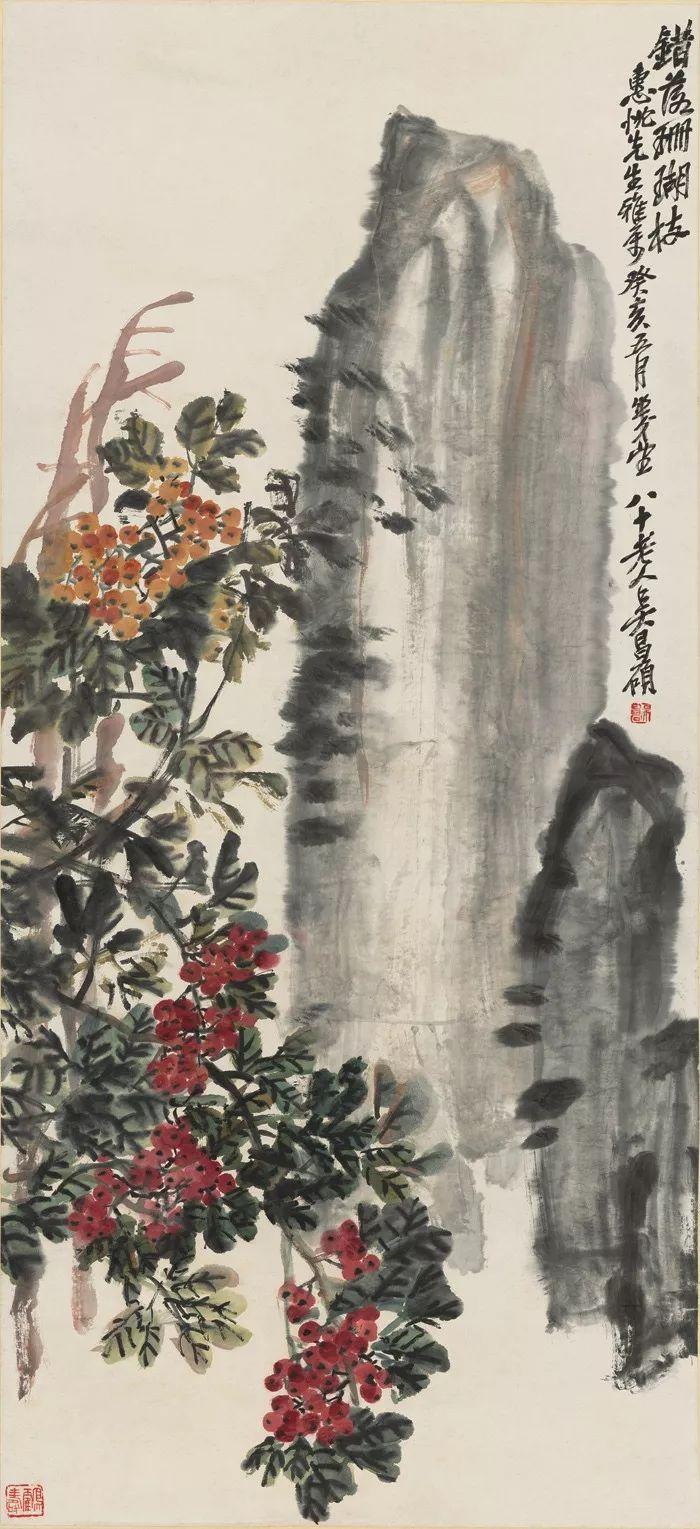 錯落珊瑚枝
先生雅屬癸亥五月 八十老人吳昌碩